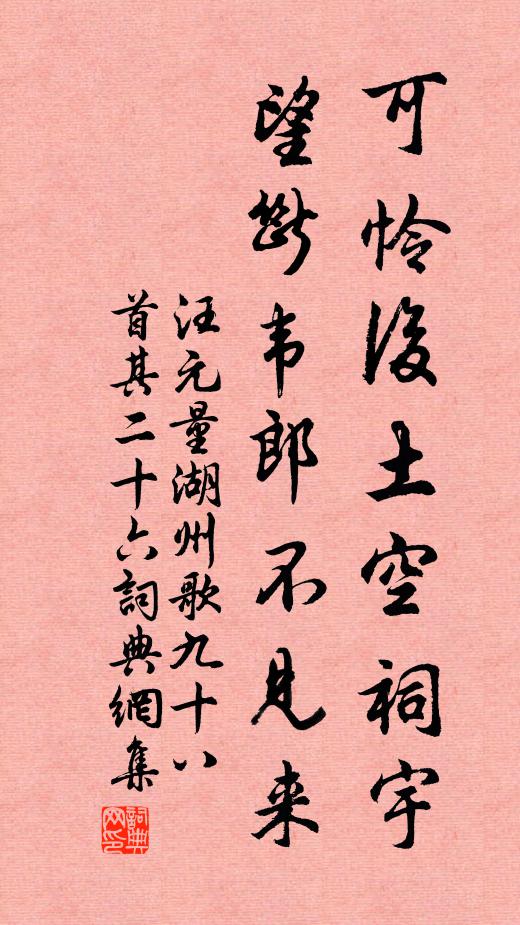 可怜後土空祠宇
望断韦郎不见来
汪元量湖州歌九十八
首其二十六詞典網集
詞典
网印